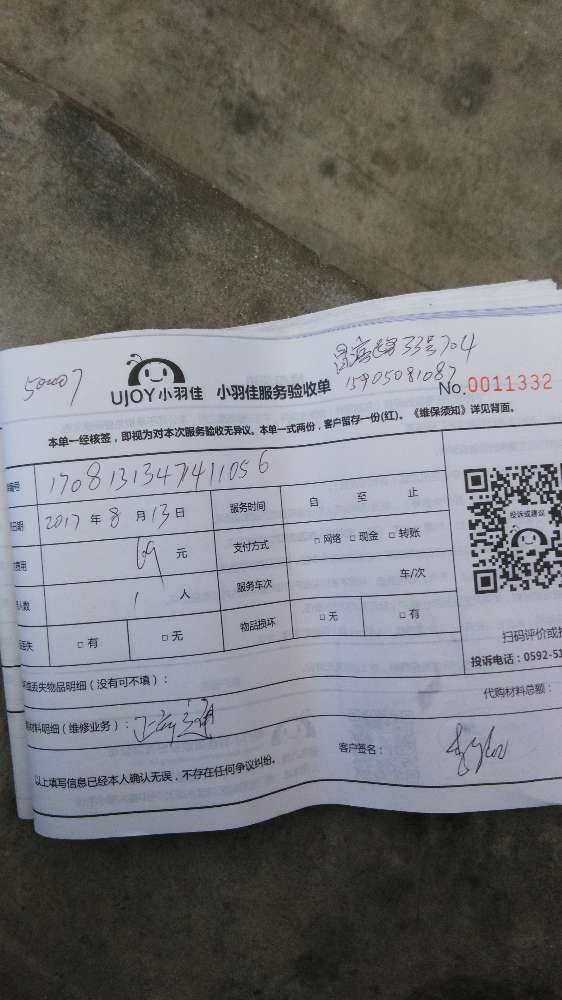 50007
33号704
15905081087
UJOY小羽佳 小羽佳服务验收单
No.0011332
本单一经核签，即视为对本次服务验收无异议。本单一式两份，客户暂存一份(红)。《维保须知》详见背面。
编号 1708131347411056
日期 2017 年 8 月 13 日 服务时间 自 至 止
费用 69 元 支付方式 □ 网络 □ 现金 □ 转账
人数 1 人 服务车次 车/次
丢失 □ 有 □ 无 物品损坏 □ 无 □ 有
投诉或建议
扫码评价或投
投诉电话：0592-51
丢失物品明细（没有可不填）：
代购材料总额：
材料明细（维修业务）：正常
以上填写信息已经本人确认无误，不存在任何争议纠纷。
客户签名：